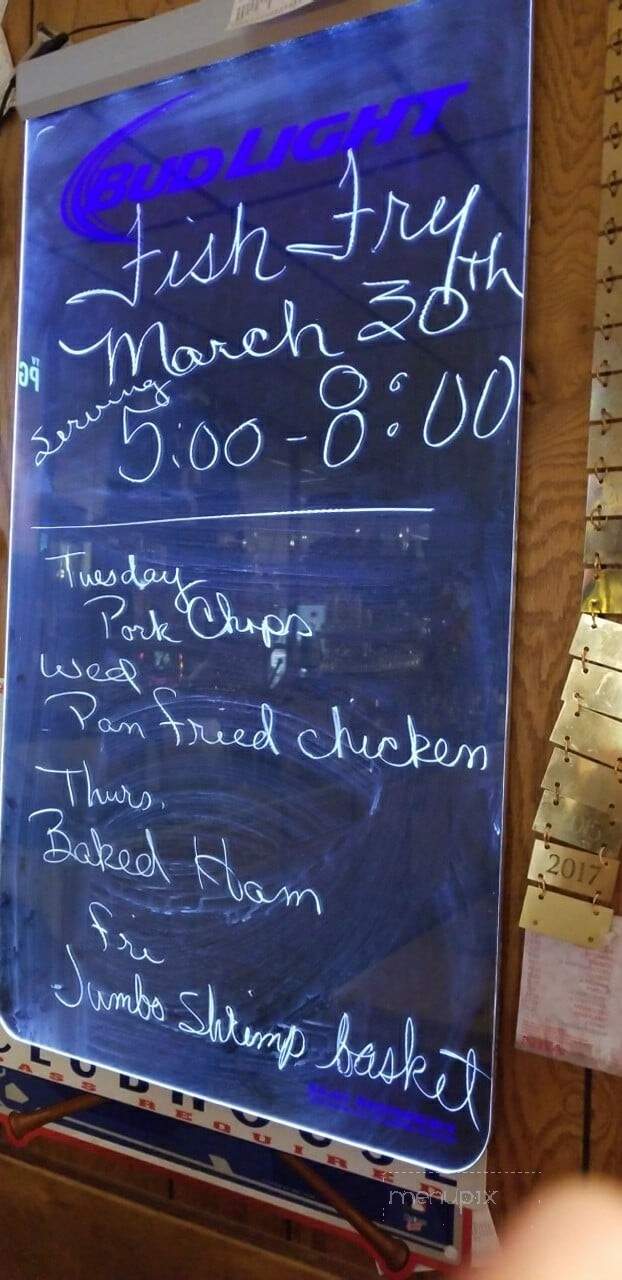 BUD LIGHT
Fish Fry
March 30th
Serving
5:00 - 8:00
Tuesday
Pork Chops
Wed
Pan fried chicken
Thurs.
Baked Ham
fri
Jumbo Shrimp basket
2017
menupix